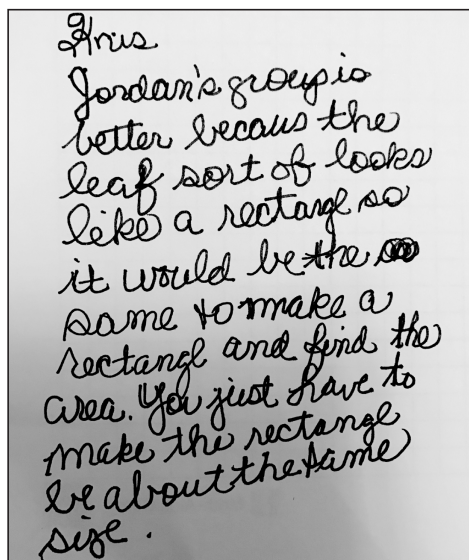 Kris
Jordan's group is
better becaus the
leaf sort of looks
like a rectangl so
it would be the
same to make a
rectangl and find the
area. You just have to
make the rectange
be about the same
size.